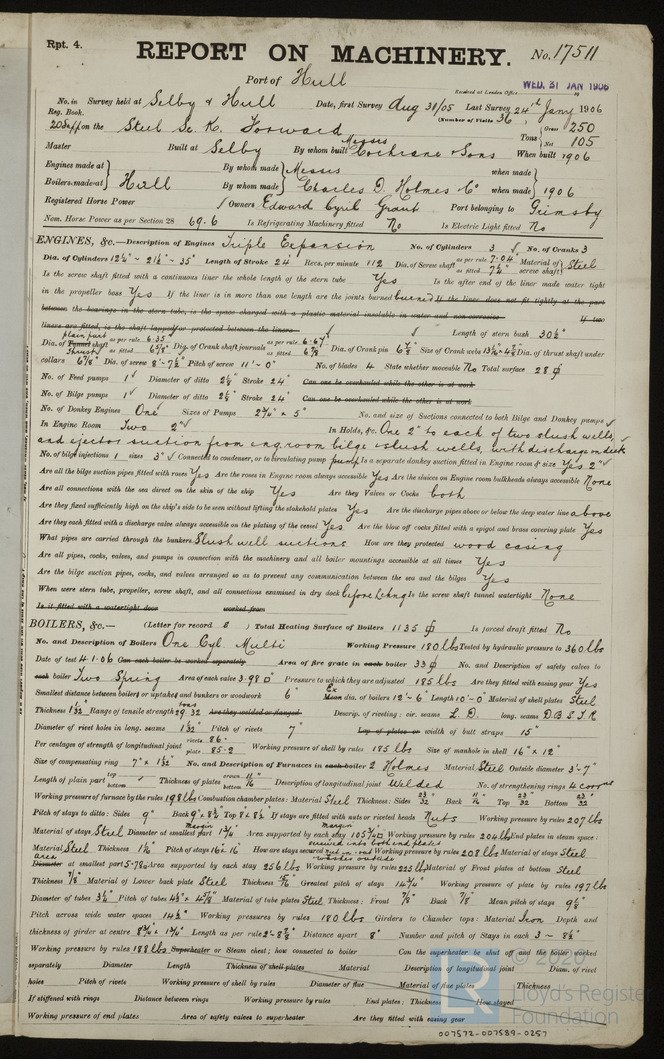 Rpt. 4.
REPORT ON MACHINERY.
No. 17511
Port of Hull
Received at London Office WED. 31 JAN 1906
No. in Survey held at Selby & Hull Date, first Survey Aug 31/05 Last Survey 24th Jany 1906
Reg. Book. (Number of Visits 36)
on the Steel Sc. K. Forward Tons Gross 250 Net 105
Master Built at Selby By whom built Messrs Cochrane & Sons When built 1906
Engines made at Hull By whom made Messrs when made 1906
Boilers made at By whom made Charles D. Holmes & Co when made
Registered Horse Power Owners Edward Cyril Grant Port belonging to Grimsby
Nom. Horse Power as per Section 28 69.6 Is Refrigerating Machinery fitted No Is Electric Light fitted No
ENGINES, &c.—Description of Engines Triple Expansion No. of Cylinders 3 No. of Cranks 3
Dia. of Cylinders 12½" - 21½" - 35" Length of Stroke 24" Revs. per minute 112 Dia. of Screw shaft as per rule 7.04 as fitted 7¼" Material of screw shaft Steel
Is the screw shaft fitted with a continuous liner the whole length of the stern tube Yes Is the after end of the liner made water tight
in the propeller boss Yes If the liner is in more than one length are the joints burned burned If the liner does not fit tightly at the part
between the bearings in the stern tube, is the space charged with a plastic material insoluble in water and non-corrosive If two
liners are fitted, is the shaft lapped or protected between the liners Length of stern bush 30½"
plain part
Dia. of Tunnel shaft as per rule 6.35 as fitted 6⅝" Dia. of Crank shaft journals as per rule 6.67 as fitted 6⅞" Dia. of Crank pin 6⅞" Size of Crank webs 13⅝" x 4⅝" Dia. of thrust shaft under
collars 6⅞" Dia. of screw 8'-7½" Pitch of screw 11'-0" No. of blades 4 State whether moveable No Total surface 28
No. of Feed pumps 1 Diameter of ditto 2½" Stroke 24" Can one be overhauled while the other is at work
No. of Bilge pumps 1 Diameter of ditto 2½" Stroke 24" Can one be overhauled while the other is at work
No. of Donkey Engines One Sizes of Pumps 2¾" x 5" No. and size of Suctions connected to both Bilge and Donkey pumps
In Engine Room Two 2" In Holds, &c. One 2" to each of two slush wells,
and ejector suction from eng. room bilge & slush wells, with discharge on deck
No. of bilge injections 1 sizes 3" Connected to condenser, or to circulating pump pump Is a separate donkey suction fitted in Engine room & size Yes 2"
Are all the bilge suction pipes fitted with roses Yes Are the roses in Engine room always accessible Yes Are the sluices on Engine room bulkheads always accessible None
Are all connections with the sea direct on the skin of the ship Yes Are they Valves or Cocks both
Are they fixed sufficiently high on the ship's side to be seen without lifting the stokehold plates Yes Are the discharge pipes above or below the deep water line above
Are they each fitted with a discharge valve always accessible on the plating of the vessel Yes Are the blow off cocks fitted with a spigot and brass covering plate Yes
What pipes are carried through the bunkers Slush well suctions How are they protected wood casing
Are all pipes, cocks, valves, and pumps in connection with the machinery and all boiler mountings accessible at all times Yes
Are the bilge suction pipes, cocks, and valves arranged so as to prevent any communication between the sea and the bilges Yes
When were stern tube, propeller, screw shaft, and all connections examined in dry dock before Lchng Is the screw shaft tunnel watertight None
Is it fitted with a watertight door worked from
BOILERS, &c.— (Letter for record S) Total Heating Surface of Boilers 1135 Is forced draft fitted No
No. and Description of Boilers One Cyl. Multi Working Pressure 180 lbs Tested by hydraulic pressure to 360 lbs
Date of test 4.1.06 Can each boiler be worked separately Area of fire grate in each boiler 33 No. and Description of safety valves to
each boiler Two Spring Area of each valve 3.98 Pressure to which they are adjusted 185 lbs Are they fitted with easing gear Yes
Smallest distance between boilers or uptakes and bunkers or woodwork 6" Mean dia. of boilers 12'-6" Length 10'-0" Material of shell plates Steel
Thickness 1 1/32 Range of tensile strength 29.32 Are they welded or flanged Descrip. of riveting: cir. seams L.D. long. seams D.B.S.T.R.
Diameter of rivet holes in long. seams 1 1/32" Pitch of rivets 7" Lap of plates or width of butt straps 15"
Per centages of strength of longitudinal joint rivets 86. plate 85.2 Working pressure of shell by rules 185 lbs Size of manhole in shell 16" x 12"
Size of compensating ring 7" x 1 1/32 No. and Description of Furnaces in each boiler 2 Holmes Material Steel Outside diameter 3'-7"
Length of plain part top bottom Thickness of plates crown 11" bottom 16 Description of longitudinal joint Welded No. of strengthening rings 4
Working pressure of furnace by the rules 198 lbs Combustion chamber plates: Material Steel Thickness: Sides 23/32 Back 11/16 Top 23/32 Bottom 23/32
Pitch of stays to ditto: Sides 9" Back 9" x 8½ Top 8 x 8½ If stays are fitted with nuts or riveted heads Nuts Working pressure by rules 207 lbs
Material of stays Steel Diameter at smallest part 1¾" Area supported by each stay 105 Working pressure by rules 204 lbs End plates in steam space:
Material Steel Thickness 1⅛" Pitch of stays 16 x 16 How are stays secured Working pressure by rules 208 lbs Material of stays Steel
area
Diameter at smallest part 5.78 Area supported by each stay 256 Working pressure by rules 225 lbs Material of Front plates at bottom Steel
Thickness 7/8" Material of Lower back plate Steel Thickness Greatest pitch of stays 14¾" Working pressure of plate by rules 197 lbs
Diameter of tubes 3¼" Pitch of tubes 4½" x 4⅝" Material of tube plates Steel Thickness: Front 7/8" Back 7/8" Mean pitch of stays 9⅛"
Pitch across wide water spaces 14½" Working pressures by rules 180 lbs Girders to Chamber tops: Material Iron Depth and
thickness of girder at centre 8¾" x 1¾" Length as per rule Distance apart 8" Number and pitch of Stays in each 3 - 8½"
Working pressure by rules 188 lbs Superheater or Steam chest; how connected to boiler Can the superheater be shut off and the boiler worked
separately Diameter Length Thickness of shell plates Material Description of longitudinal joint Diam. of rivet
holes Pitch of rivets Working pressure of shell by rules Diameter of flue Material of flue plates Thickness
If stiffened with rings Distance between rings Working pressure by rules End plates: Thickness How stayed
Working pressure of end plates Area of safety valves to superheater Are they fitted with easing gear
© 2020
Lloyd's Register
Foundation
007572-007589-0257